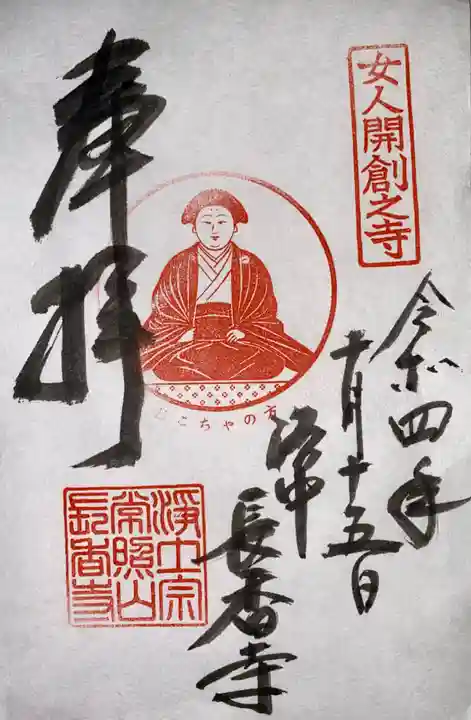 女人開創之寺
令和四年
十月十五日
こちやの方
洛中
長香寺
奉拝
淨土宗
常照山
長香寺